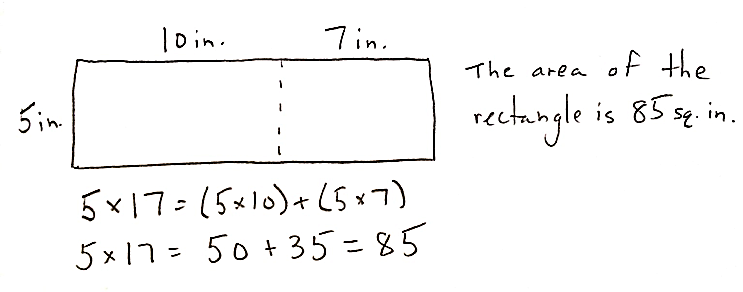 10 in. 7 in.
5 in.
The area of the
rectangle is 85 sq. in.
5 × 17 = (5×10) + (5×7)
5 × 17 = 50 + 35 = 85